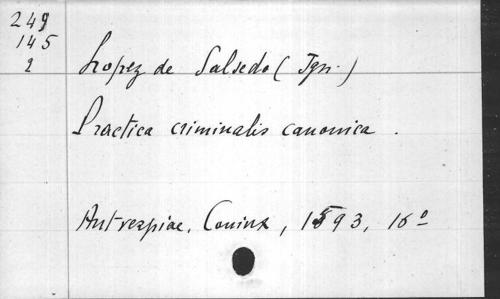 249
145
2
Lopez de Salsedo (Ign.)
Practica criminalis canonica.
Antverpiae, Coninx, 1593, 16º